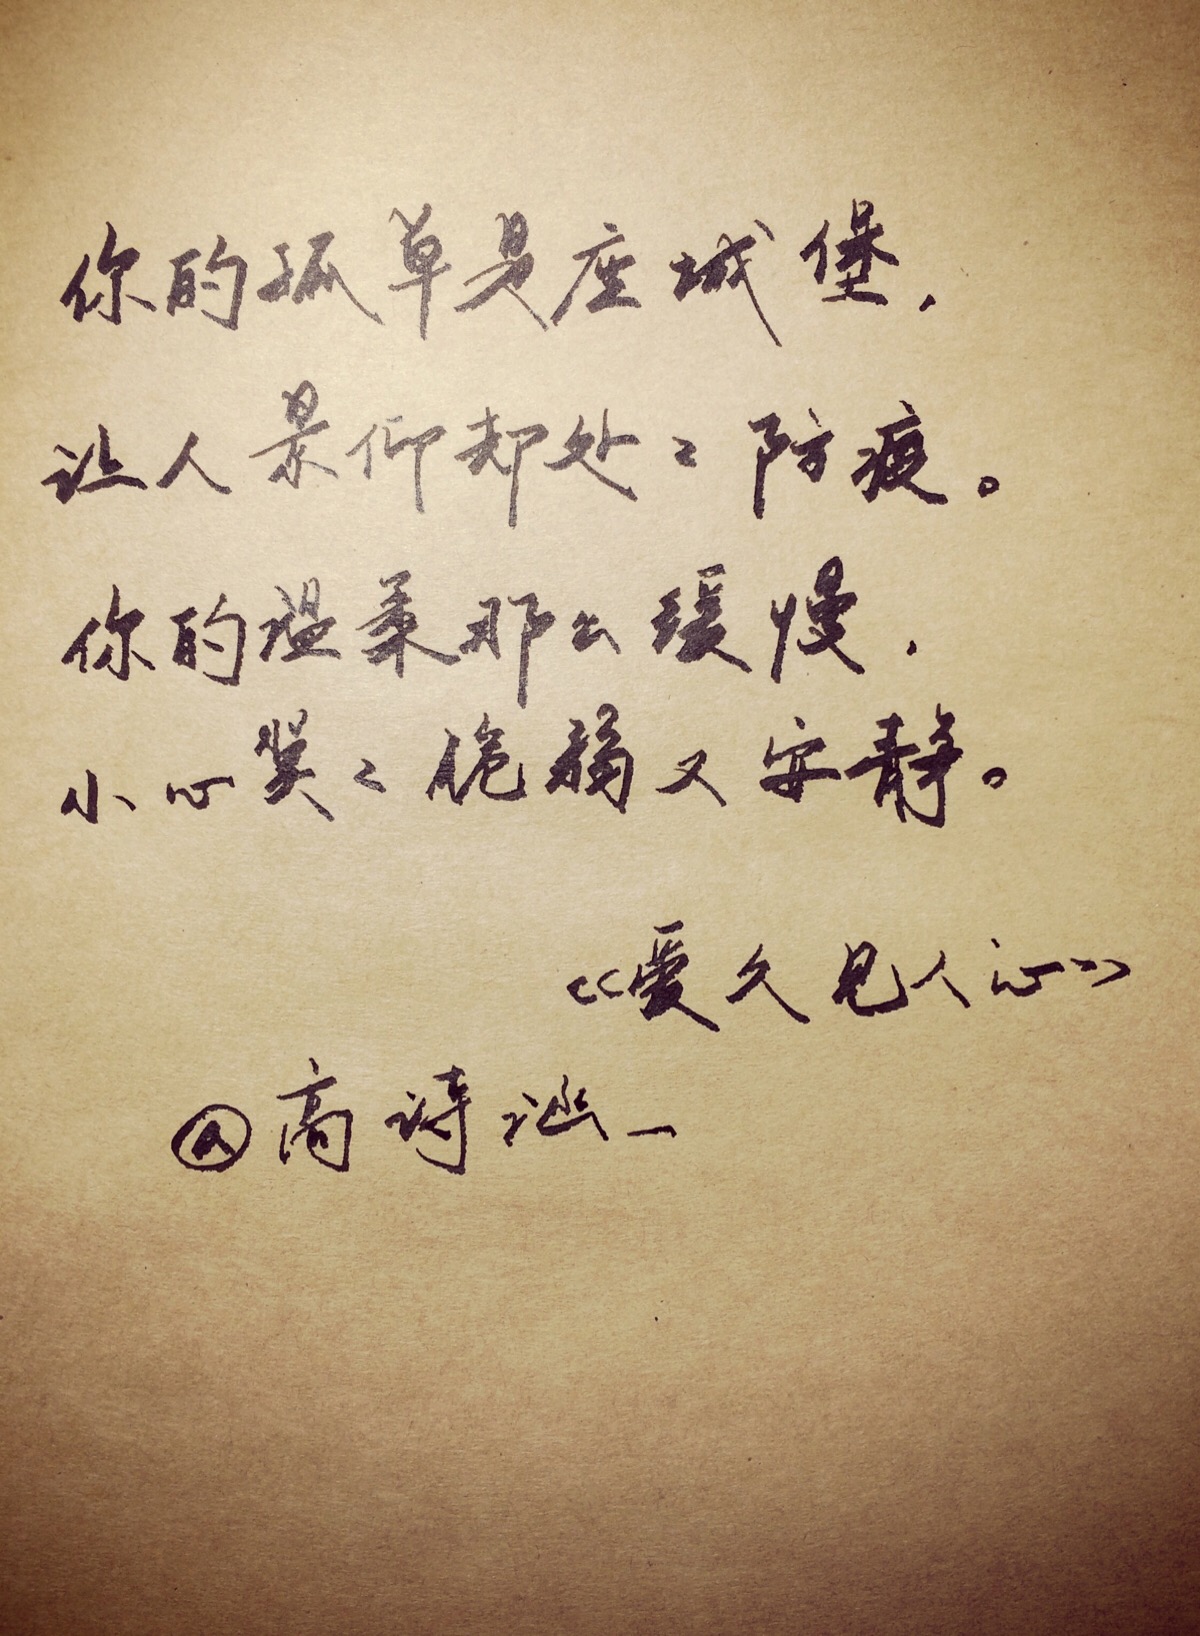 你的孤单是座城堡，
让人景仰却处处防疫。
你的温柔那么缓慢，
小心翼翼脆弱又安静。
《爱久见人心》
@高诗涵_